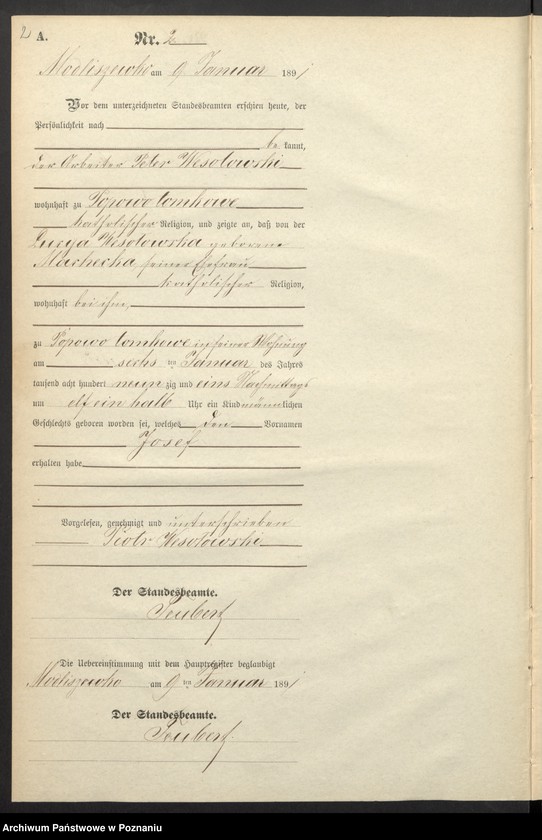 2
A. Nr. 2
Modliszewko am 9 Januar 1891
Vor dem unterzeichneten Standesbeamten erschien heute, der
Persönlichkeit nach
be kannt,
der Arbeiter Peter Wesolowski
wohnhaft zu Popowo tomkowe
katholischer Religion, und zeigte an, daß von der
Lucya Wesolowska geborene
Machecha, seiner Ehefrau
katholischer Religion,
wohnhaft bei ihm,
zu Popowo tomkowe in seiner Wohnung
am sechs ten Januar des Jahres
tausend acht hundert neun zig und eins Nachmittags
um elf ein halb Uhr ein Kind männlichen
Geschlechts geboren worden sei, welches den Vornamen
Josef
erhalten habe
Vorgelesen, genehmigt und unterschrieben
Piotr Wesolowski
Der Standesbeamte.
Teubert
Die Uebereinstimmung mit dem Hauptregister beglaubigt
Modliszewko am 9 ten Januar 1891
Der Standesbeamte.
Teubert
Archiwum Państwowe w Poznaniu